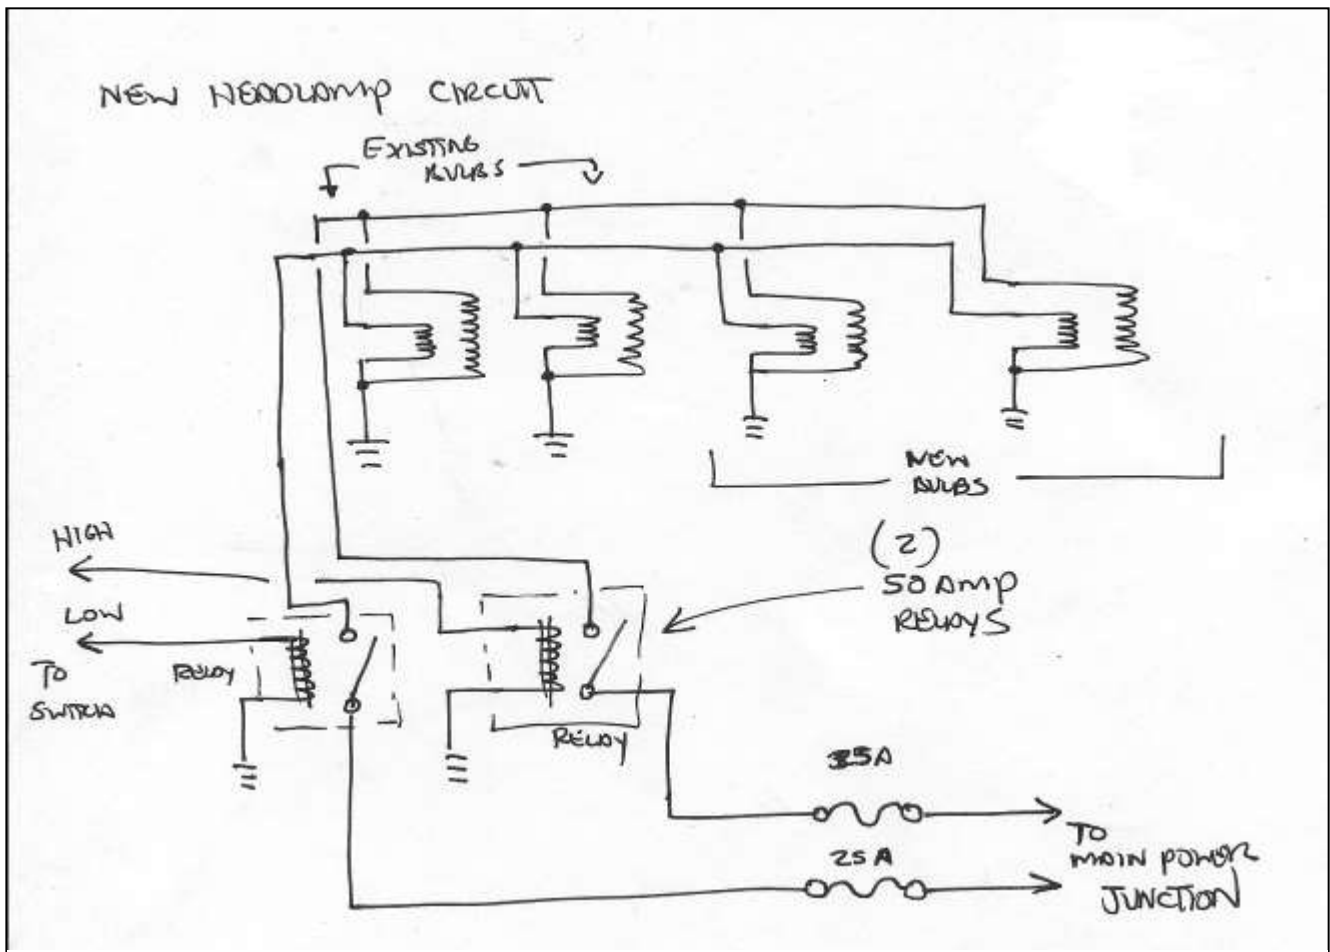 NEW HEADLAMP CIRCUIT
EXISTING
BULBS
NEW
BULBS
HIGH
LOW
TO
SWITCH
RELAY
RELAY
(2)
50 AMP
RELAYS
35A
25A
TO
MAIN POWER
JUNCTION